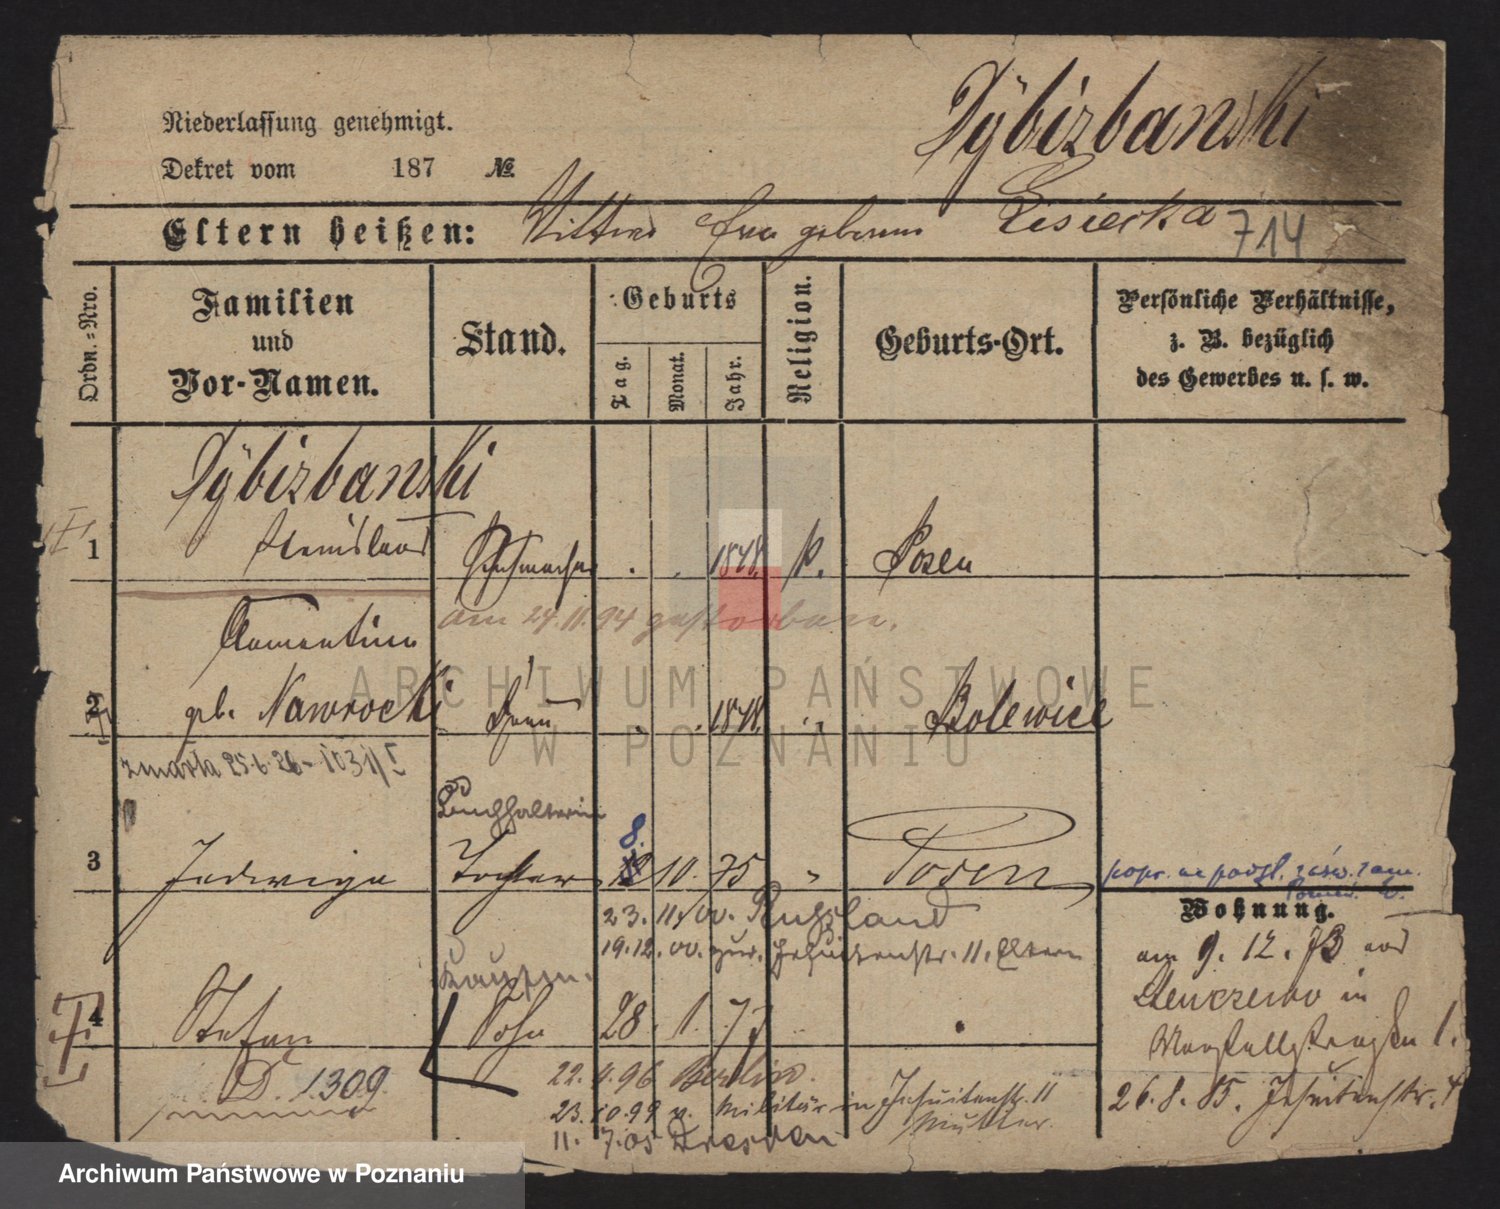 Dÿbizbanski
Niederlassung genehmigt.
Dekret vom 187 No.
Eltern heißen: geborene Lisiecka 714
Ordn.=Nro.
Familien
und
Vor-Namen.
Stand.
Geburts
Tag.
Monat.
Jahr.
Religion.
Geburts-Ort.
Persönliche Verhältnisse,
z. B. bezüglich
des Gewerbes u. s. w.
Dÿbizbanski
1 Stanislaus Schuhmacher 1848. k. Posen
am 24.11.94 gestorben.
Clementine
2 geb. Nawrocki Frau 1848. Bolewice
zmarła 25.6.26
Buchhalterin
8.
3 Jadwiga Tochter 10. 75 Posen
Wohnung.
23. 11. 00. Russland
19.12.00. zur. Jesuitenstr. 11. Eltern
am 9. 12. 73 aus
in
4 Stefan Sohn 28. 1. 77
D. 1309.
22. 4. 96 Berlin.
23. 10. 99 v. Militär in Jesuitenstr. 11
Mutter.
11. 7. 05 Dresden
26. 8. 85. Jesuitenstr.
ARCHIWUM PAŃSTWOWE
W POZNANIU
Archiwum Państwowe w Poznaniu